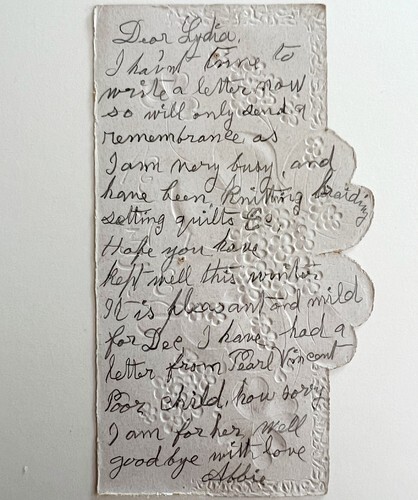 Dear Lydia,
I hav'nt time to
write a letter now
so will only send a
remembrance as
I am very busy, and
have been, knitting braiding
setting quilts &c,
Hope you have
kept well this winter.
It is pleasant and mild
for Dec, I have had a
letter from Pearl Vincent
Poor child, how sorry
I am for her, Well
goodbye with love
Abbie